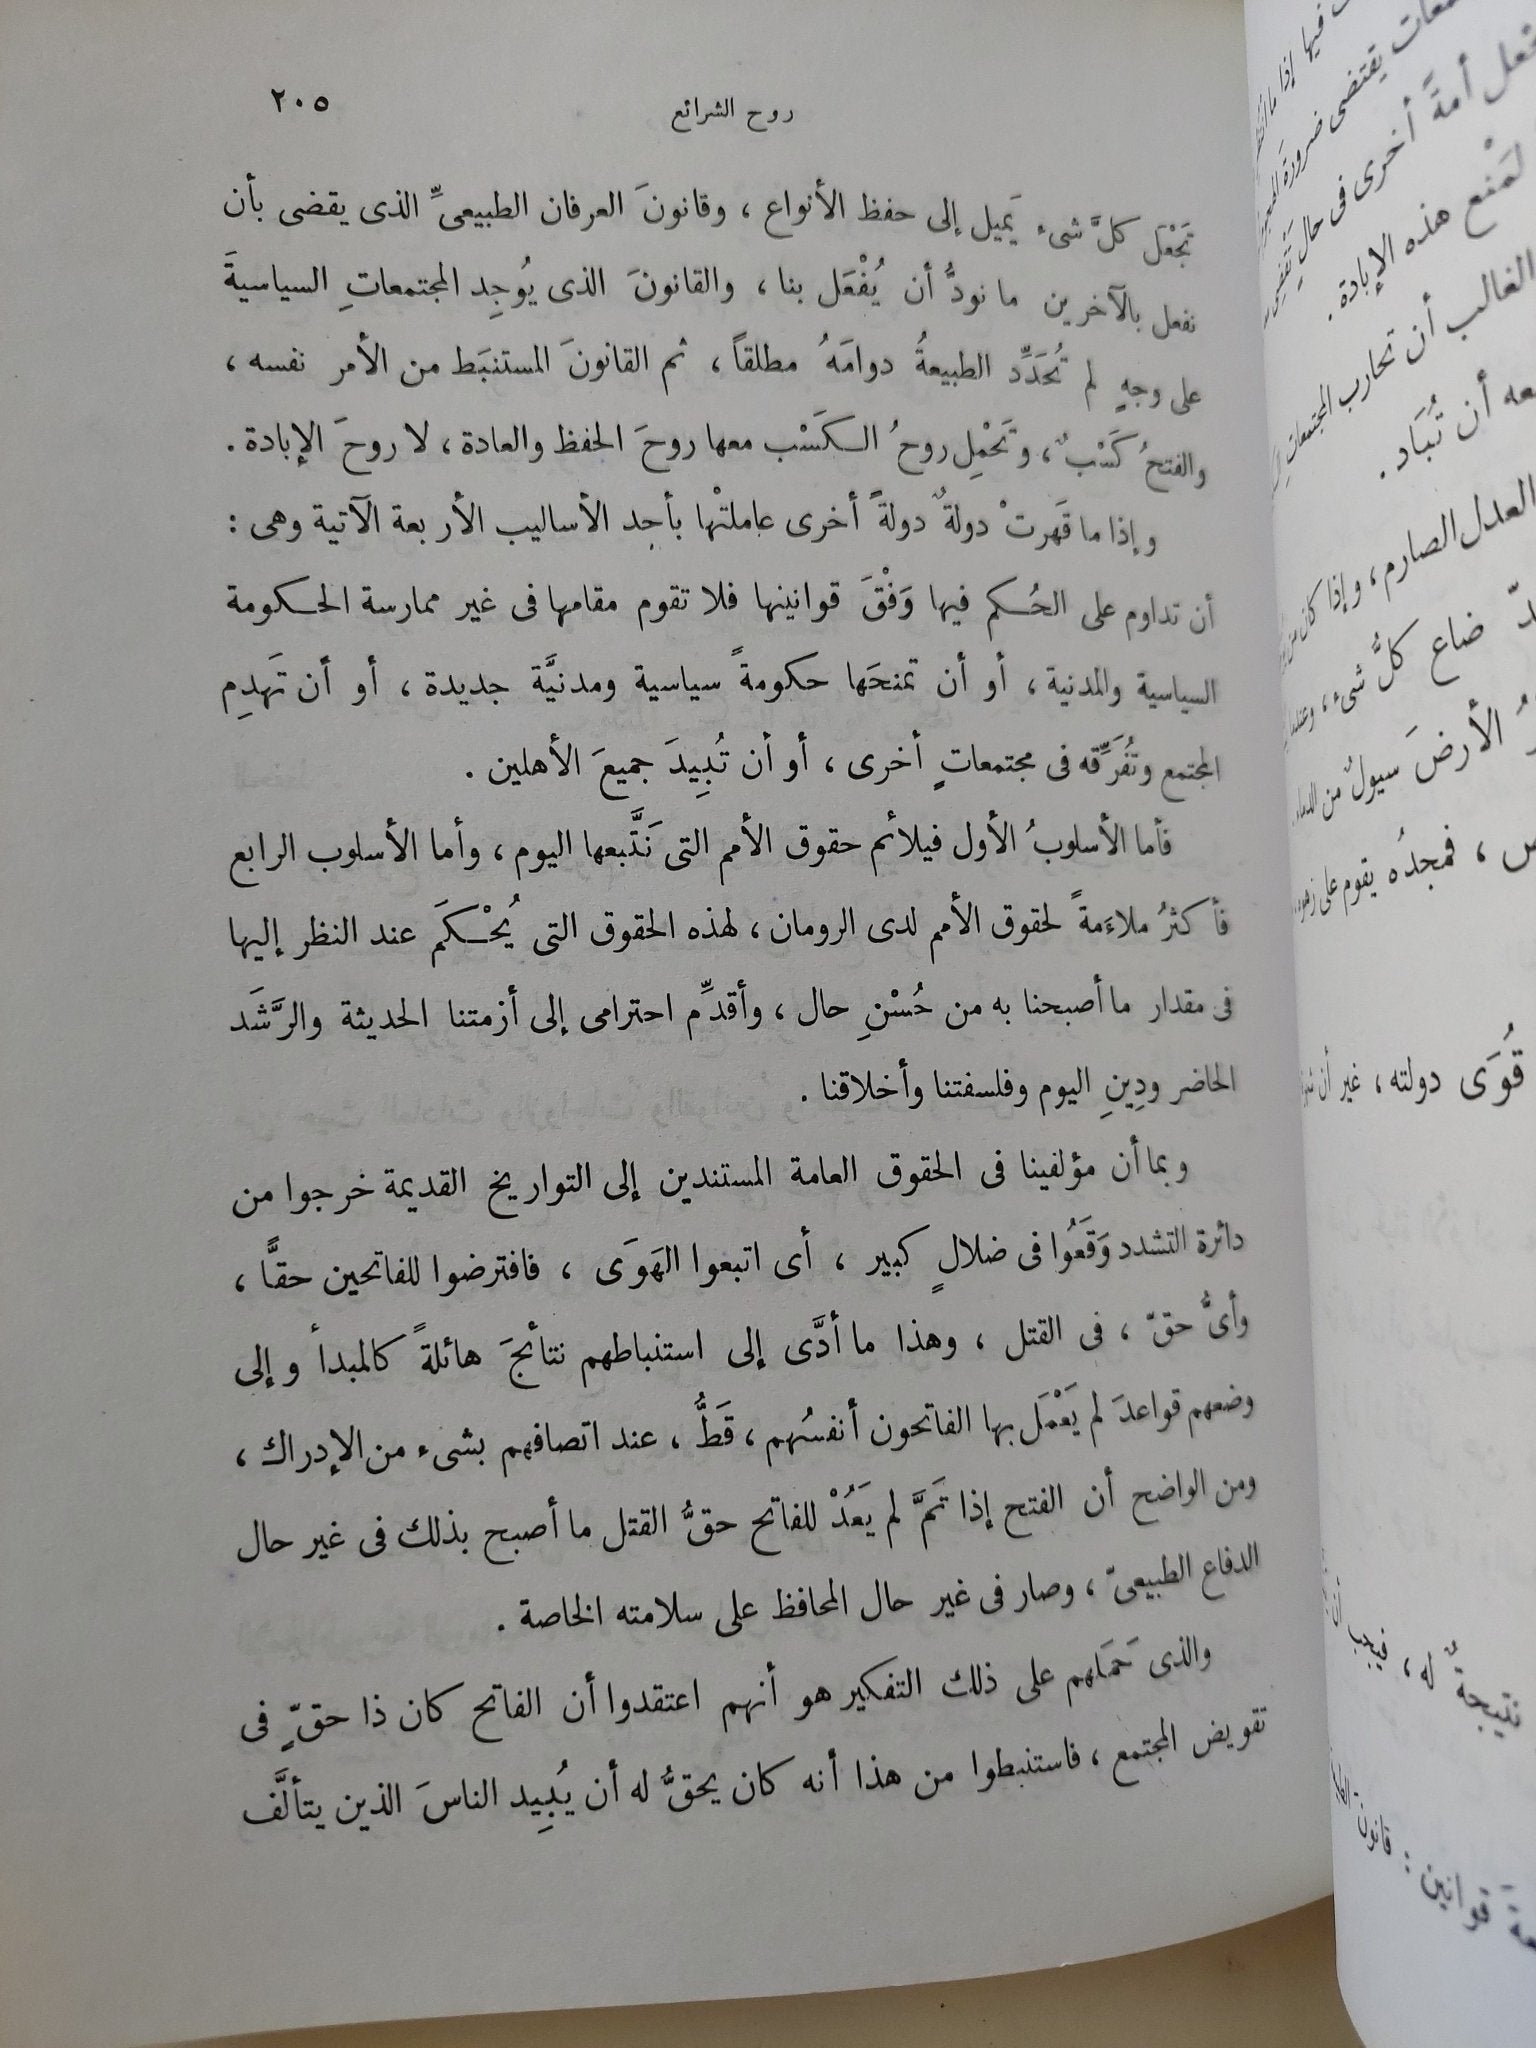 روح الشرائع ٢٠٥
تَجْعَل كلَّ شىء يَميل إلى حفظ الأنواع ، وقانونَ العرفان الطبيعىِّ الذى يقضى بأن
نفعل بالآخرين ما نودُّ أن يُفْعَل بنا ، والقانونَ الذى يُوجِد المجتمعاتِ السياسيةَ
على وجهٍ لم تُحَدِّد الطبيعةُ دوامَهُ مطلقاً ، ثم القانونَ المستنبَط من الأمر نفسه ،
والفتحُ كَسْبٌ ، وتَحْمِل روحُ الكَسْب معها روحَ الحفظ والعادة ، لا روحَ الإبادة .
وإذا ما قَهرتْ دولةٌ دولةً أخرى عاملتْها بأحِد الأساليب الأربعة الآتية وهى :
أن تداوم على الحُكم فيها وَفْقَ قوانينها فلا تقوم مقامها فى غير ممارسة الحكومة
السياسية والمدنية ، أو أن تمنحَها حكومةً سياسية ومدنيَّة جديدة ، أو أن تَهدِم
المجتمع وتُفَرِّقه فى مجتمعاتٍ أخرى ، أو أن تُبِيدَ جميعَ الأهلين .
فأما الأسلوبُ الأول فيلائم حقوق الأمم التى نَتَّبعها اليوم ، وأما الأسلوب الرابع
فأكثرُ ملاءَمةً لحقوق الأمم لدى الرومان ، لهذه الحقوق التى يُحْكَم عند النظر إليها
فى مقدار ما أصبحنا به من حُسْنِ حال ، وأقدِّم احترامى إلى أزمتنا الحديثة والرَّشَد
الحاضر ودِينِ اليوم وفلسفتنا وأخلاقنا .
وبما أن مؤلفينا فى الحقوق العامة المستندين إلى التواريخ القديمة خرجوا من
دائرة التشدد وَقَعُوا فى ضلالٍ كبير ، أى اتبعوا الهَوَى ، فافترضوا للفاتحين حقًّا ،
وأىُّ حقّ ، فى القتل ، وهذا ما أدَّى إلى استنباطهم نتائجَ هائلةً كالمبدأ وإلى
وضعهم قواعدَ لم يَعْمَل بها الفاتحون أنفسُهم ، قَطُّ ، عند اتصافهم بشىء من الإدراك ،
ومن الواضح أن الفتح إذا تَمَّ لم يَعُدْ للفاتح حقُّ القتل ما أصبح بذلك فى غير حال
الدفاع الطبيعىّ ، وصار فى غير حال المحافظ على سلامته الخاصة .
والذى حَمَلهم على ذلك التفكير هو أنهم اعتقدوا أن الفاتح كان ذا حقٍّ فى
تقويض المجتمع ، فاستنبطوا من هذا أنه كان يحقُّ له أن يُبِيد الناسَ الذين يتألَّف
فيها إذا ما
يقتضى ضرورة
أمةً أخرى فى حالٍ
لمَنْع هذه الإبادة .
الغالب أن تحارب المجتمعات
أن تُبَاد .
العدل الصارم ، وإذا كان
ضاع كلُّ شىء ،
الأرضَ سيولٌ من الدماء .
فمجدُه يقوم على
قُوَى دولته ، غير أن
نتيجةٌ له ، فيجب
قوانين : قانون